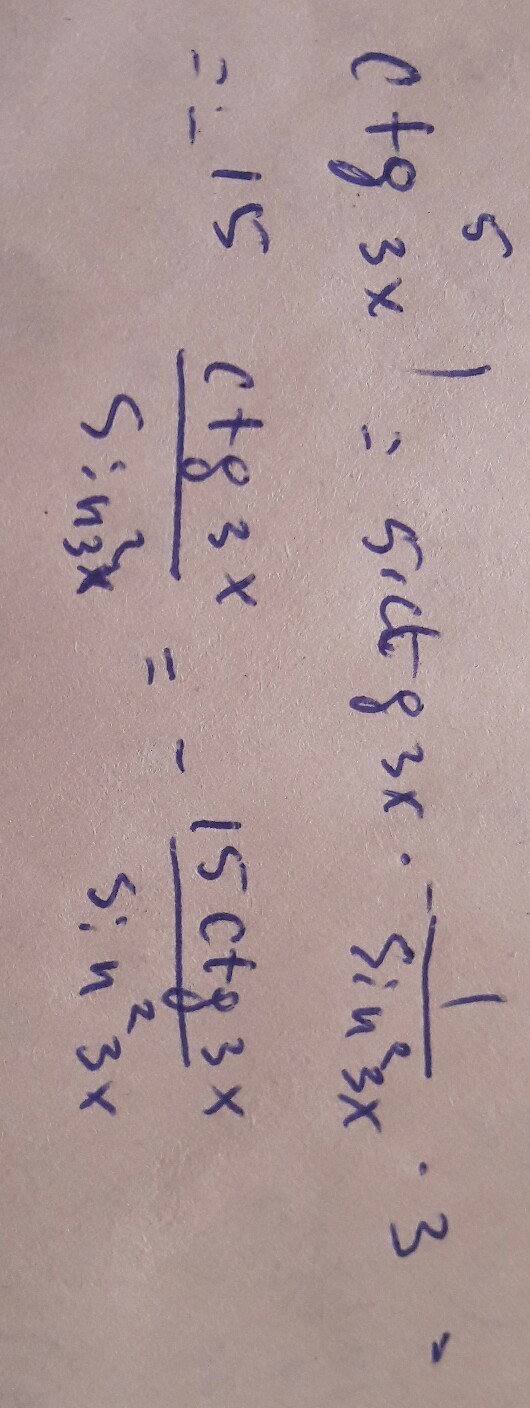 ctg⁵ 3x' = 5·ctg 3x · - 1/sin² 3x · 3 =
= - 15 ctg 3x/sin² 3x = - 15 ctg 3x/sin² 3x